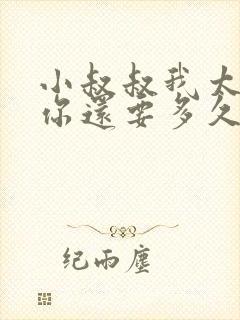 小叔叔我太
你還要多久
纪雨塵